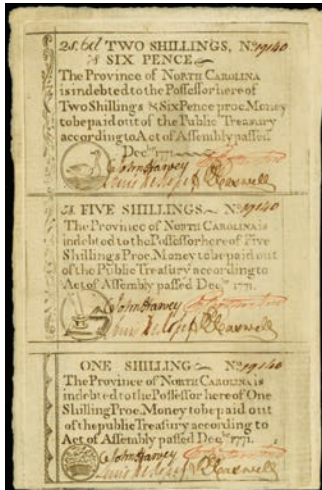 2s.6d TWO SHILLINGS, No 19140
& SIX PENCE
The Province of NORTH CAROLINA
is indebted to the Possessor hereof
Two Shillings & Six Pence proc. Money
to be paid out of the Public Treasury
according to Act of Assembly passed
Decr. 1771
John Harvey
Lewis De Rosset R Caswell
5s. FIVE SHILLINGS No 19140
The Province of NORTH CAROLINA is
indebted to the Possessor hereof Five
Shillings Proc. Money to be paid out
of the Public Treasury according to
Act of Assembly passed Decr. 1771.
John Harvey
Lewis De Rosset R Caswell
ONE SHILLING No 19140
The Province of NORTH CAROLINA is
indebted to the Possessor hereof One
Shilling Proc. Money to be paid out
of the public Treasury according to
Act of Assembly passed Decr. 1771.
John Harvey
Lewis De Rosset R Caswell